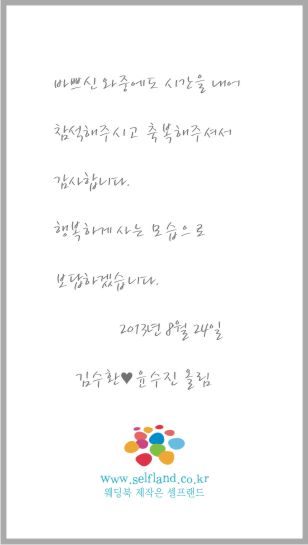 바쁘신 와중에도 시간을 내어
참석해주시고 축복해주셔서
감사합니다.
행복하게 사는 모습으로
보답하겠습니다.
2013년 8월 24일
김수환♥윤수진 올림
www.selfland.co.kr
웨딩북 제작은 셀프랜드